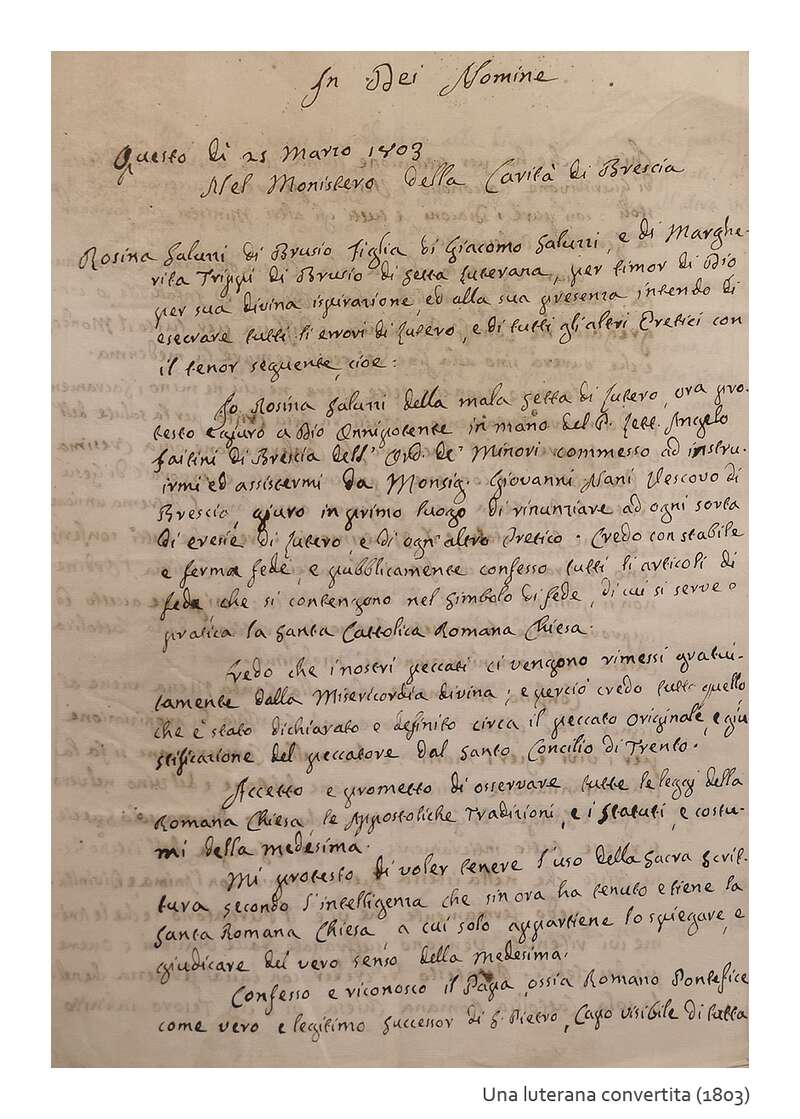 In Dei Nomine
Questo dì 25 Marzo 1803
Nel Monistero della Carità di Brescia
Rosina Galuzzi di Brusio figlia di Giacomo Galuzzi, e di Marghe-
rita Trippi di Brusio di setta luterana, per timor di Dio
per sua divina ispirazione, ed alla sua presenza intendo di
esecrare tutti li errori di lutero, e di tutti gli altri Eretici con
il tenor seguente, cioè:
Io Rosina Galuzzi della mala setta di lutero, ora pro-
testo e giuro a Dio Onnipotente in mano del P. Lett. Angelo
Faitini di Brescia dell' Ord. de' Minori commesso ad instru-
irmi ed assistermi da Monsig. Giovanni Nani Vescovo di
Brescia, giuro in primo luogo di rinunziare ad ogni sorta
di eresie di lutero, e di ogn'altro Eretico. Credo con stabile
e ferma fede, e pubblicamente confesso tutti li articoli di
fede che si contengono nel simbolo di fede, di cui si serve o
pratica la Santa Cattolica Romana Chiesa.
Credo che i nostri peccati ci vengono rimessi gratui-
tamente dalla Misericordia divina; e perciò credo tutto quello
che è stato dichiarato e definito circa il peccato originale, e giu
stificazione del peccatore dal Santo Concilio di Trento.
Accetto e prometto di osservare tutte le leggi della
Romana Chiesa le Appostoliche Tradizioni, e i statuti, e costu-
mi della medesima.
Mi protesto di voler tenere l'uso della Sacra Scrit-
tura secondo l'intelligenza che sin ora ha tenuto e tiene la
Santa Romana Chiesa, a cui solo appartiene lo spiegare, e
giudicare del vero senso della medesima.
Confesso e riconosco il Papa, ossia Romano Pontefice
come vero e legitimo successor di S. Pietro, Capo visibile di tutta
Una luterana convertita (1803)